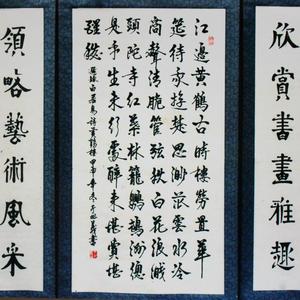 欣賞書畫雅趣
江邊黃鶴古時樓勞置華
筵待我遊楚思淼茫雲水冷
商聲清脆管弦秋白花浪濺
頭陀寺紅葉林籠鸚鵡洲總
是平生未行處醉來堪賞堪
醒愁
白居易詩黃鶴樓甲申年冬
領略藝術風采